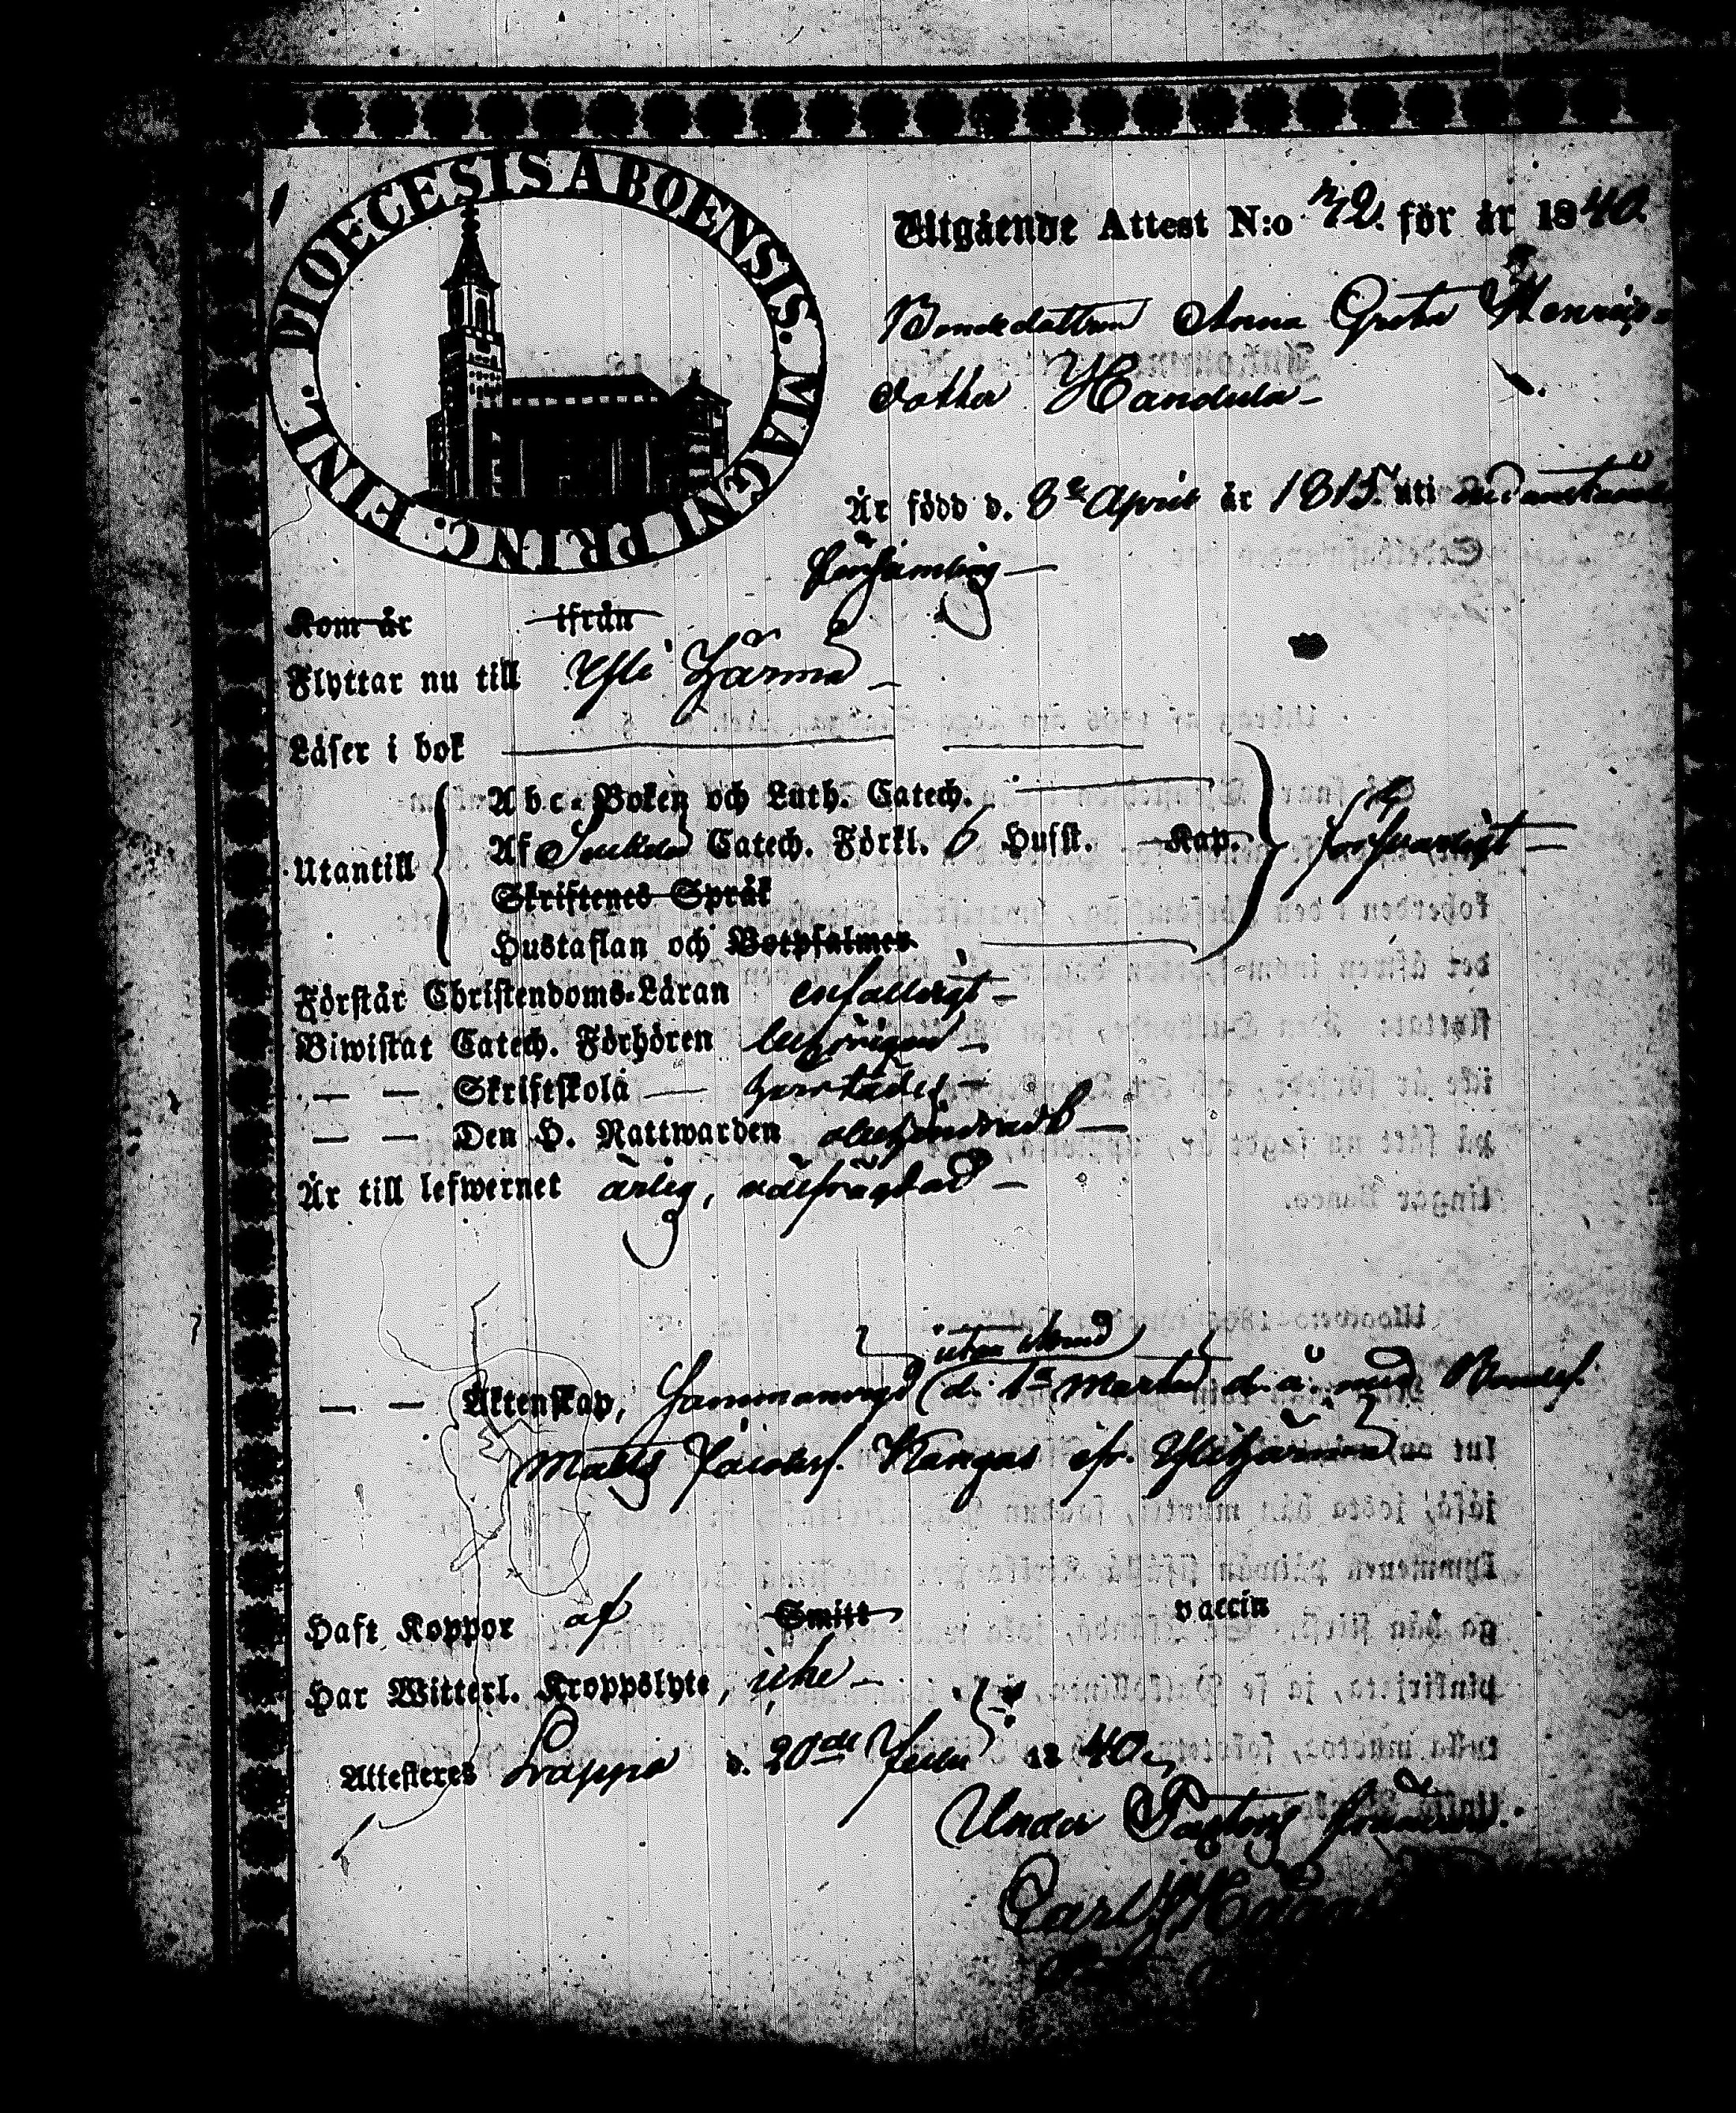 DIOECESIS ABOENSIS. MAGNI PRINC. FINL.
Utgående Attest N:o 72. för år 1840.
Bondedottren Anna Greta Henrics-
dotter Handula —
Är född d. 8de April år 1815. uti
församling —
Kom år ifrån
Flyttar nu till Ylihärmä —
Läser i bok
Abc-Boken och Luth. Catech.
Utantill Af Catech. Förkl. 6 Husst. Kap. försvarligt —
Skriftenes Språk
Hustaflan och Botpsalmer.
Förstår Christendoms-Läran enfaldigt —
Biwistat Catech. Förhören behörigen —
— — Skriftskola —
— — Den H. Nattwarden obehindrad —
Är till lefwernet ärlig, välfrägdad —
utan
— — Äktenskap, Sammanvigd (d. 1sta Martii d. å. med Bondes.
Matts Jacobss. Kangas ifr. Ylihärmä
Haft Koppor af Smitt vaccin
Har Witterl. Kroppslyte, icke —
Attesteres Lappo d. 20de Julii 1840,
Under Pastors frånvaro.
Carl